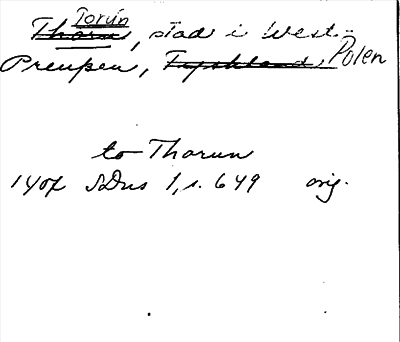 Toruń
Thorn, stad i West-
Preussen, Tyskland, Polen
to Thorun
1407 SDns 1, s. 649 orig.